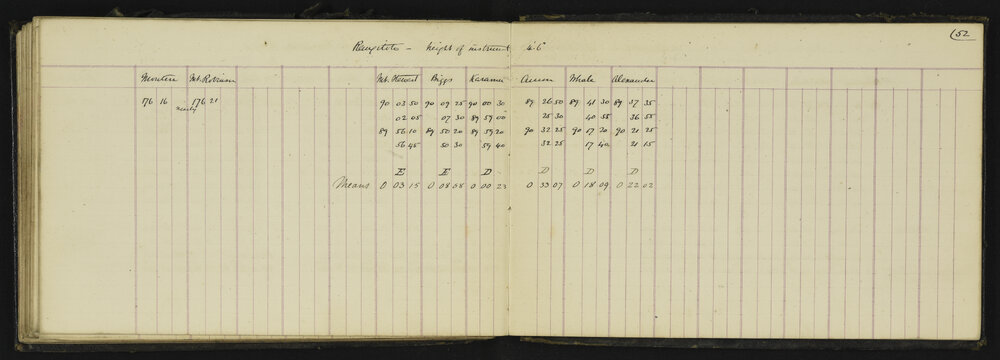 (52
Rangitoto – height of instrument 4.6
Moutere Mt. Robinson Mt. Stewart Biggs Karamu Cameron Whale Alexander
176 16 nearly 176 21 90 03 50 90 09 25 90 00 30 89 26 50 89 41 30 89 37 35
02 05 07 30 89 59 00 25 30 40 55 36 55
89 56 10 89 50 20 89 59 20 90 32 25 90 17 20 90 21 25
56 45 50 30 59 40 32 25 17 40 21 15
E E D D D D
Means 0 03 15 0 08 58 0 00 23 0 33 07 0 18 09 0 22 02